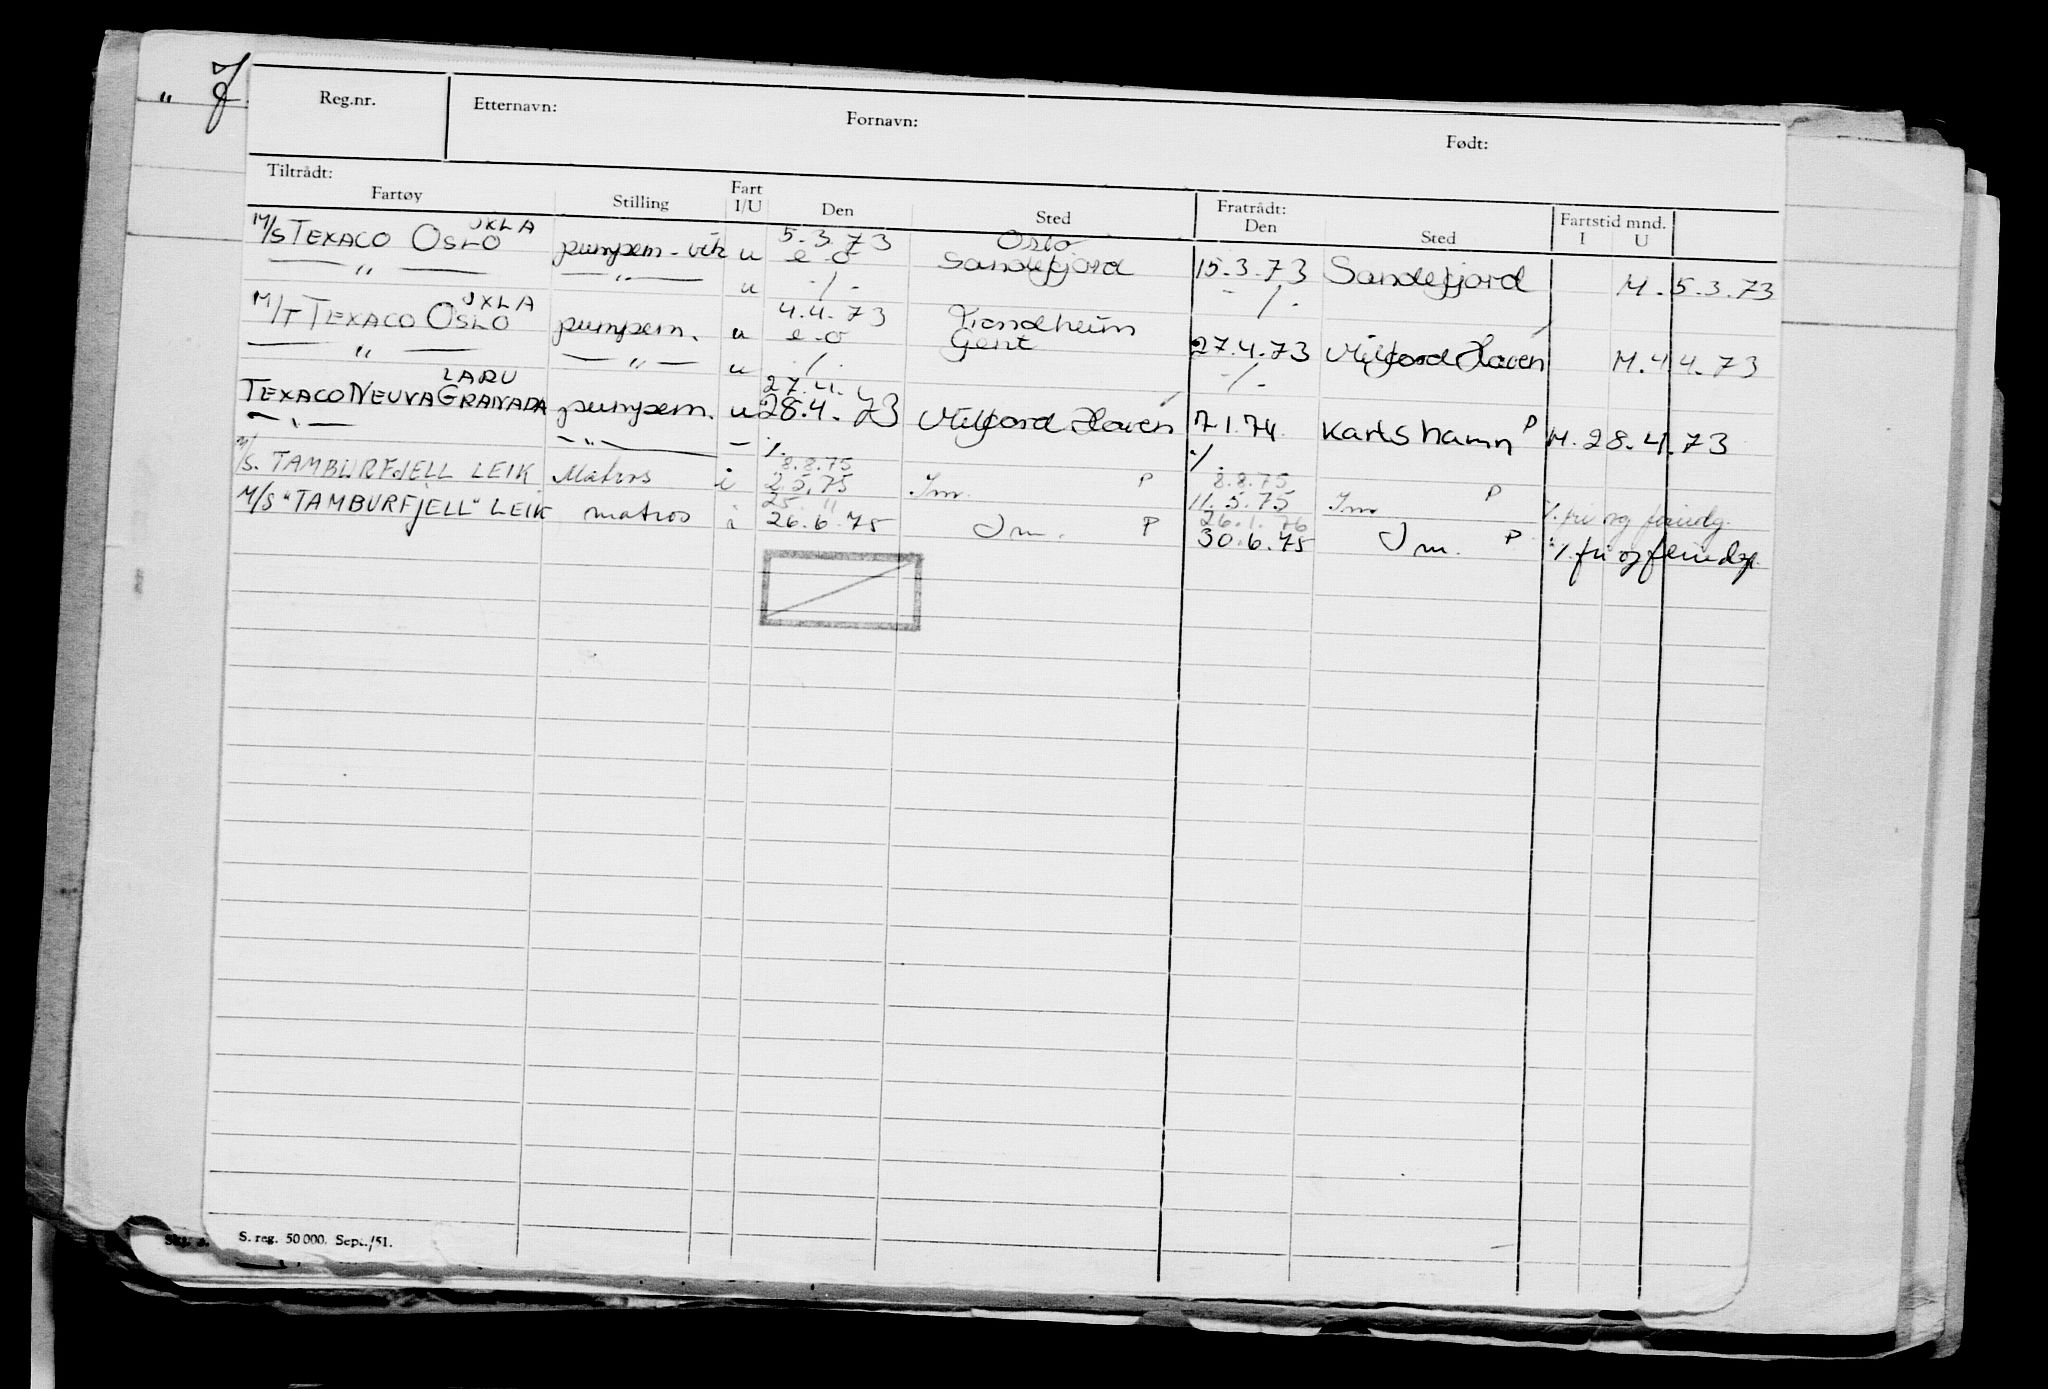 " 7
Reg.nr. Etternavn: Fornavn: Født:
Tiltrådt: Fratrådt:
Fartøy Stilling Fart I/U Den Sted Den Sted Fartstid mnd. I U
M/S TEXACO OSLO JXLA pumpem.-vik u 5.3.73 Oslo
— " — — " — u e-o Sandefjord 15.3.73 Sandefjord M. 5.3.73
-/- -/-
M/T TEXACO OSLO JXLA pumpem. u 4.4.73 Trondheim
— " — — " — u e-o Gent 27.4.73 Milford Haven M. 4.4.73
-/- -/-
TEXACO NEUVA GRANADA LARU pumpem. u 27.4.
28.4.73 Milford Haven 7.1.74 Karlshamn P M. 28.4.73
— " — — " — — ./. ./.
8.8.75 8.8.75
M/S. TAMBURFJELL LEIK Matros i 2.5.75 Im. P 11.5.75 Im P ./. fri og feriedg.
25. " 26.1.76
M/S "TAMBURFJELL" LEIK matros i 26.6.75 Im. P 30.6.75 Im. P ./. fri og feriedg.
S. reg. 50 000. Sept./51.